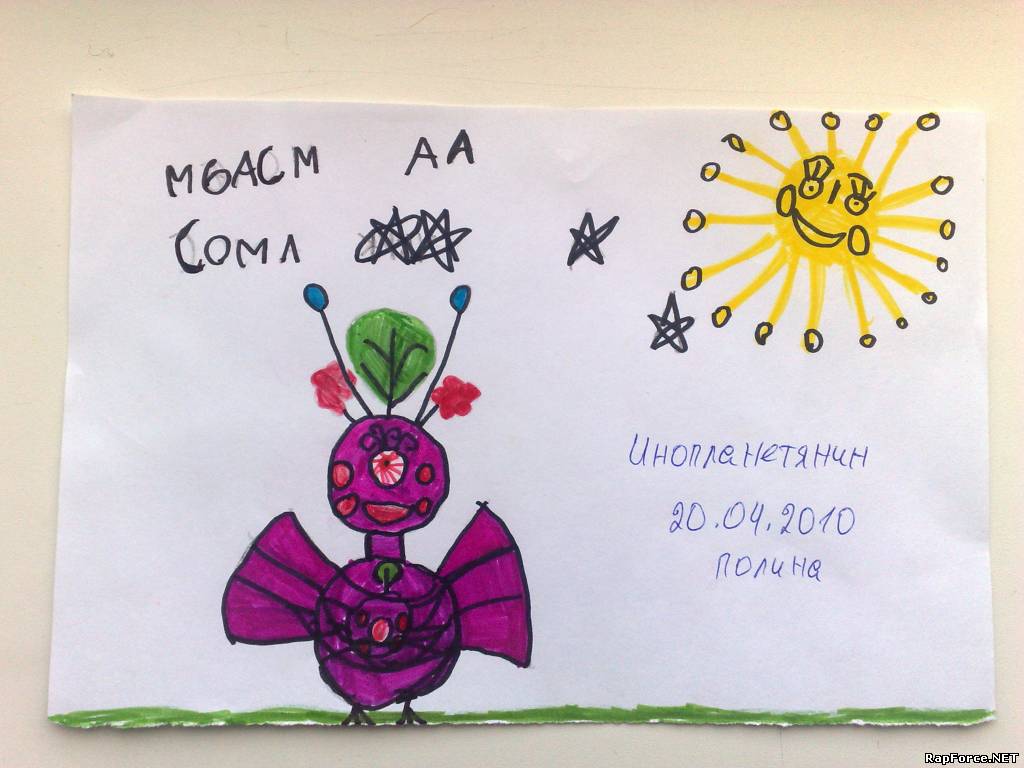 МБАСМ АА
СОМЛ
Инопланетянин
20.04.2010
полина
RapForce.NET